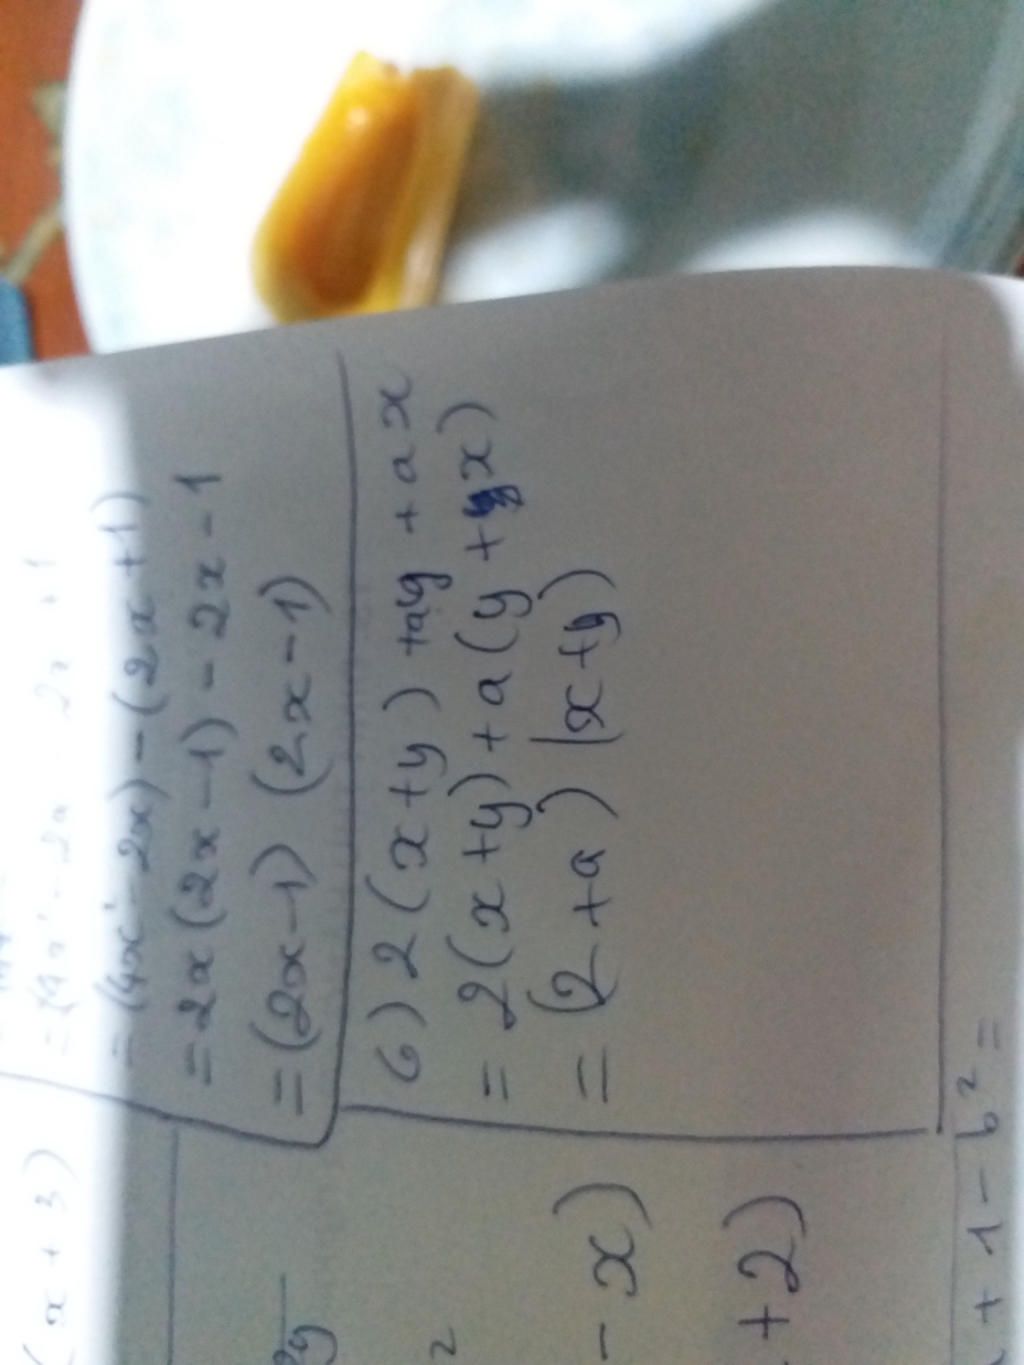 = (4x² - 2x) - (2x + 1)
= 2x(2x - 1) - 2x - 1
= (2x - 1) (2x - 1)
6) 2(x + y) + ay + ax
= 2(x + y) + a(y + x)
= (2 + a) (x + y)
(x + 3)
2y
2
- x)
+ 2)
+ 1 - b² =